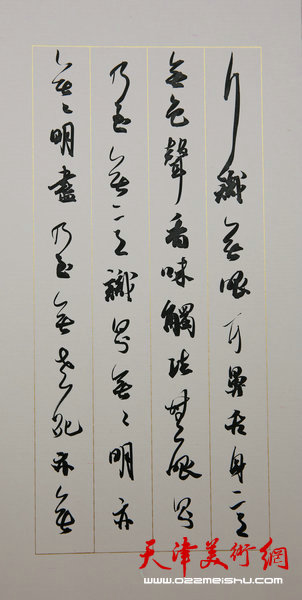 行識無眼耳鼻舌身意
無色聲香味觸法無眼界
乃至無意識界無無明亦
無無明盡乃至無老死亦無
天津美術網
www.022meishu.com